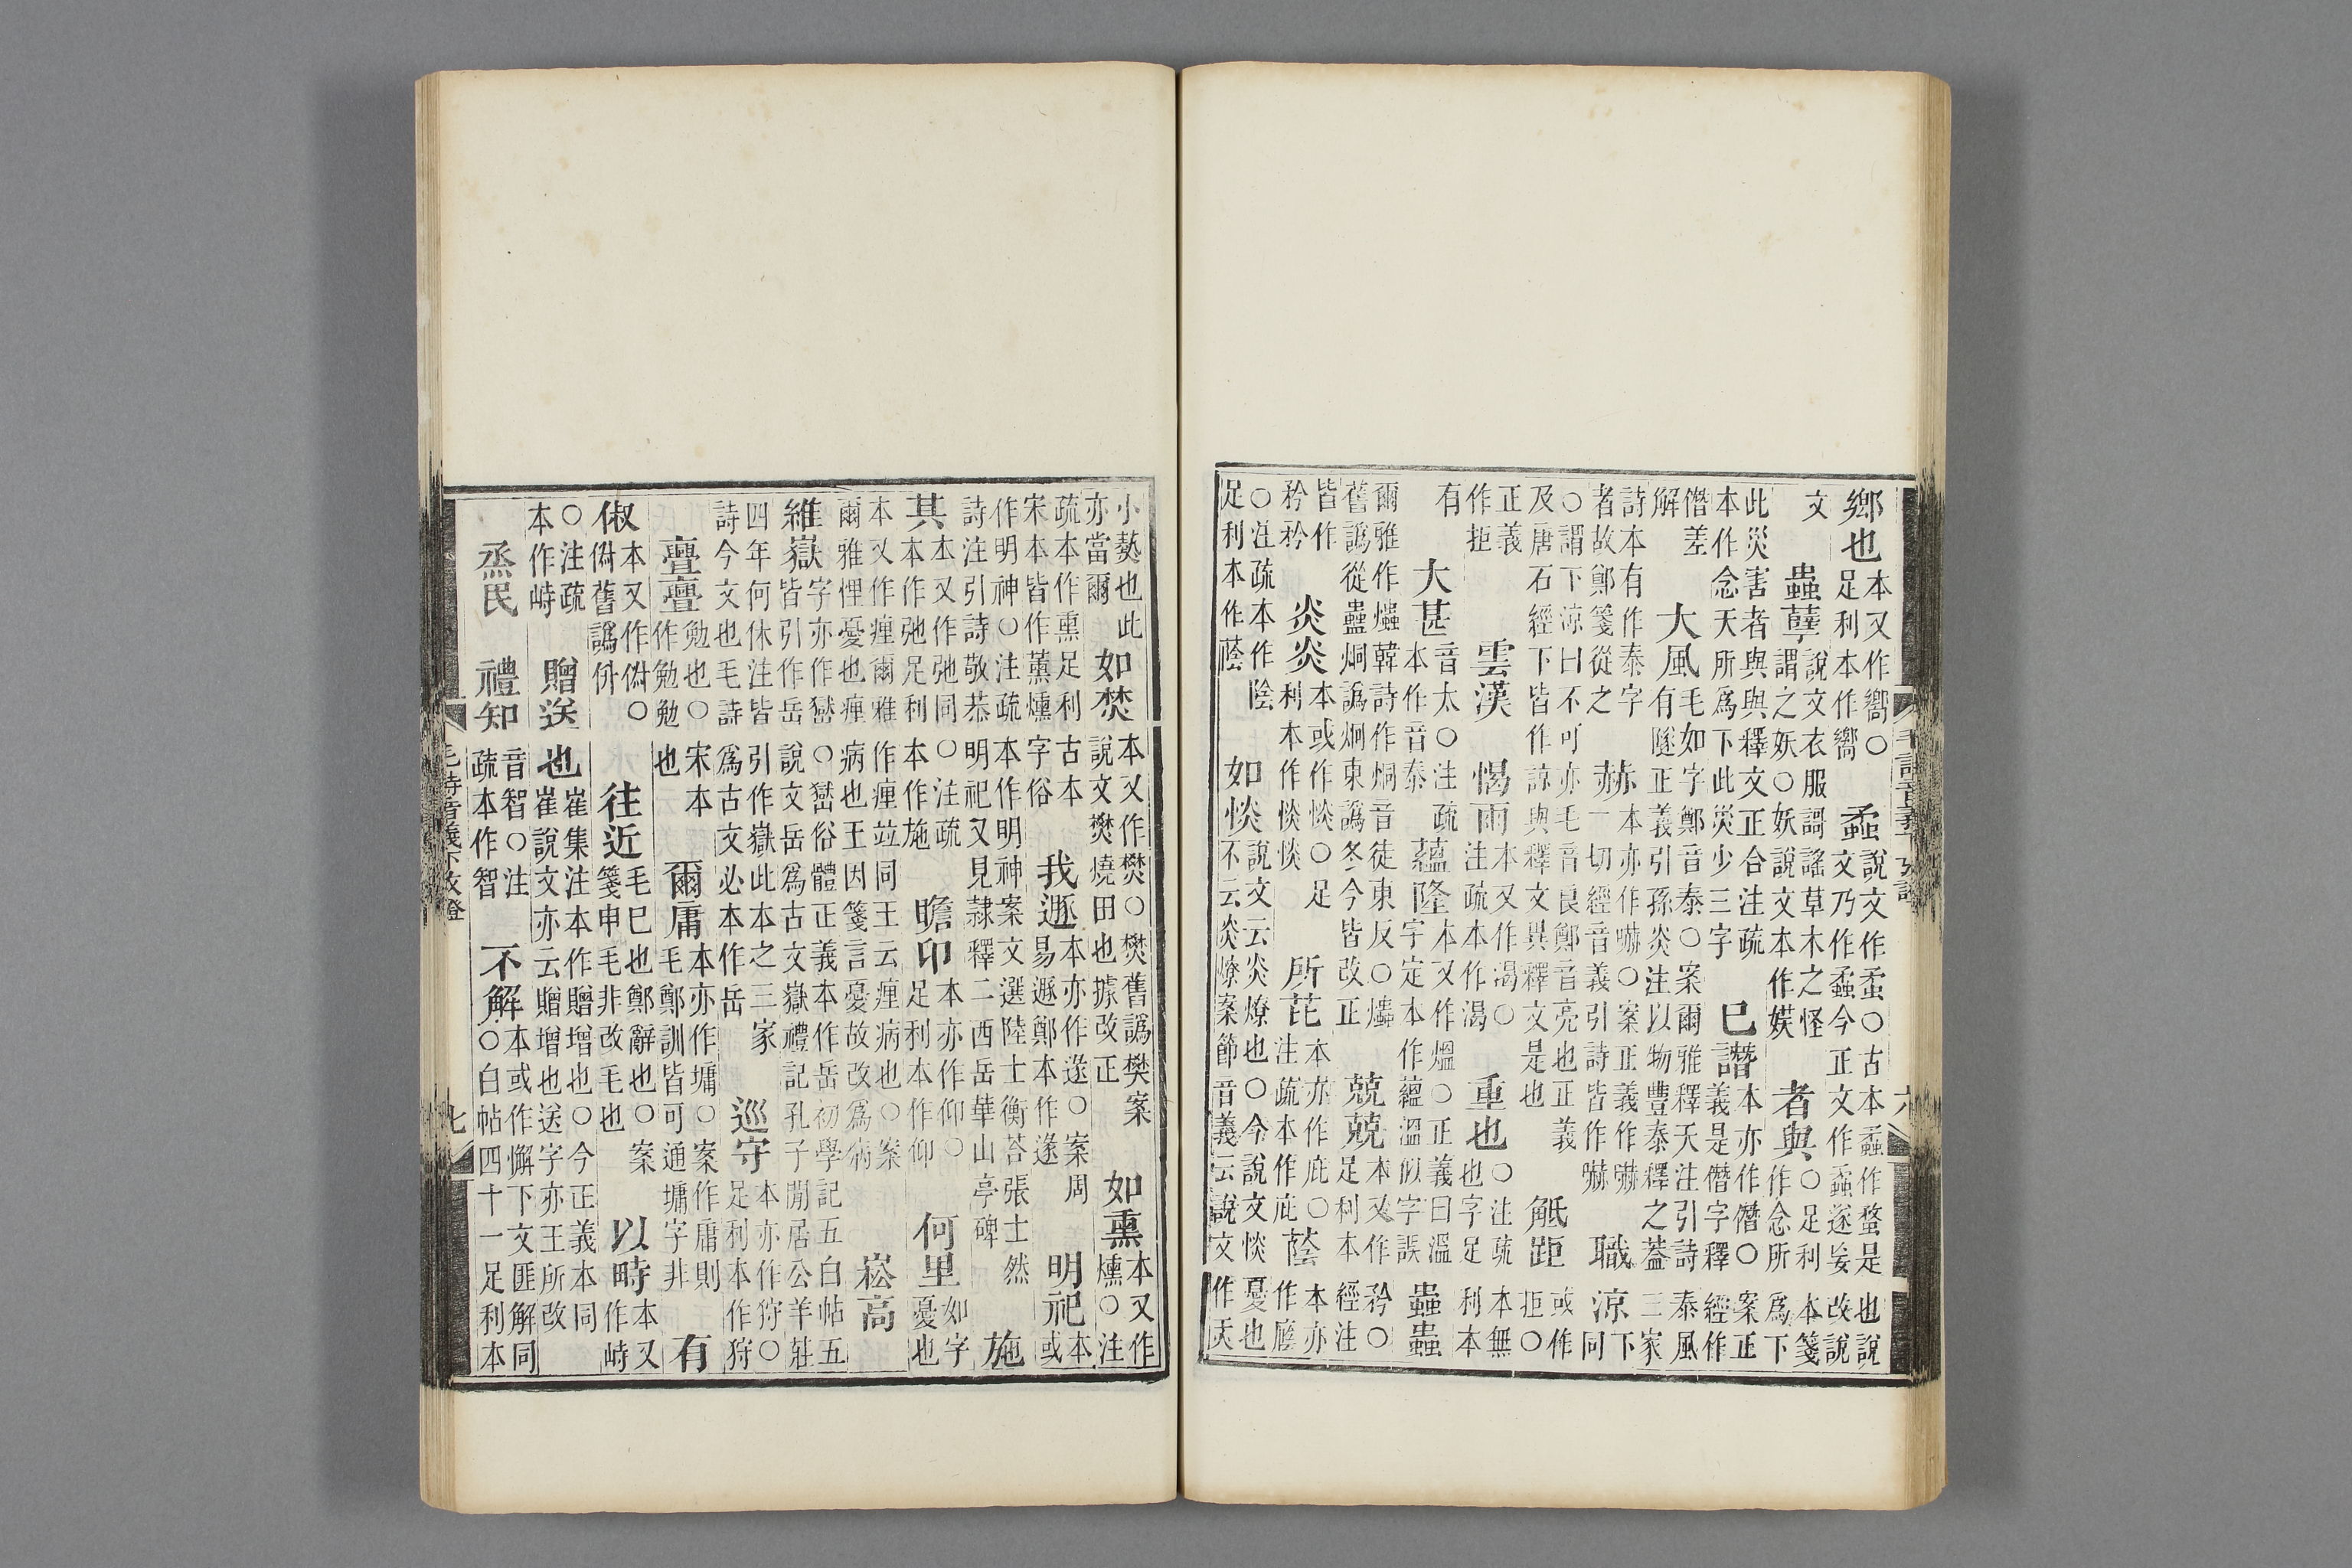 鄉也本又作嚮○足利本作嚮 蝥說文作蝥○古本蟊作蝥是也說文乃作蟊今正文作蟊遂妄改說
文 蟲孽說文衣服謌謠草木之怪謂之妖○妖說文本作媄 者與○足利本箋作念所爲下
此災害者與與釋文正合注疏本作念天所爲下此災少三字 巳譖本亦作僭○案正義是僭字釋經作
僭差解 大風毛如字鄭音泰○案爾雅釋天注引詩泰風有隧正義引孫炎注以物豐泰釋之葢三家
詩本有作泰字者故鄭箋從之 赫本亦作嚇○案正義作嚇一切經音義引詩皆作嚇 職涼下同
○謂下涼曰不可亦毛音良鄭音亮也正義及唐石經下皆作諒與釋文異釋文是也 觝距或作拒○
正義作拒 雲漢 愒雨本又作渴○注疏本作渴 重也○注疏本無也字足利本
有 大甚音太○注疏本作音泰 蘊隆本又作熅○正義曰溫字定本作蘊溫㒵字誤 蟲蟲
爾雅作爞韓詩作烔音徒東反○爞舊譌從蠱烔譌炯東譌冬今皆改正 兢兢本又作矜○足利本經注
皆作矜矜 炎炎本或作惔○足利本作惔惔 所芘本亦作庇○注疏本作庇 蔭本亦作廕
○注疏本作陰足利本作蔭 如惔說文云炎燎也○今說文惔憂也不云炎燎案節音義云說文作㶣
小爇也此亦當爾 如焚本又作樊○樊舊譌樊案說文樊燒田也據改正 如熏本又作燻○注
疏本作熏足利古本宋本皆作薰燻字俗 我遯本亦作遂○案周易遯鄭本作遂 明祀本或
作明神○注疏本作明神案文選陸士衡荅張士然詩注引詩敬恭明祀又見隸釋二西岳華山亭碑 施
其本又作弛同○注疏本作施本作弛足利 瞻卬本亦作仰○足利本作仰 何里如字憂也
本又作㾖爾雅作㾖竝同王云㾖病也○案爾雅悝憂也㾖病也王因箋言憂故改爲病 崧高
維嶽字亦作嶽○嶽俗體正義本作岳初學記五白帖五皆引作岳說文岳爲古文嶽禮記孔子閒居公羊莊
四年何休注皆引作嶽此本之三家詩今文也毛詩爲古文必本作岳 巡守本亦作狩○足利本作狩
亹亹勉也○宋本作勉勉也 爾庸本亦作墉○案作庸則毛鄭訓皆可通墉字非 有
俶本又作㑐○㑐舊譌併 往近毛巳也鄭辭也○案箋申毛非改毛也 以時本又作峙
○注疏本作峙 贈送也崔集注本作贈增也○今正義本同崔說文亦云贈增也送字亦王所改
烝民 禮知音智○注疏本作智 不解本或作懈下文匪解同○白帖四十一足利本
毛詩音義下攷證 七